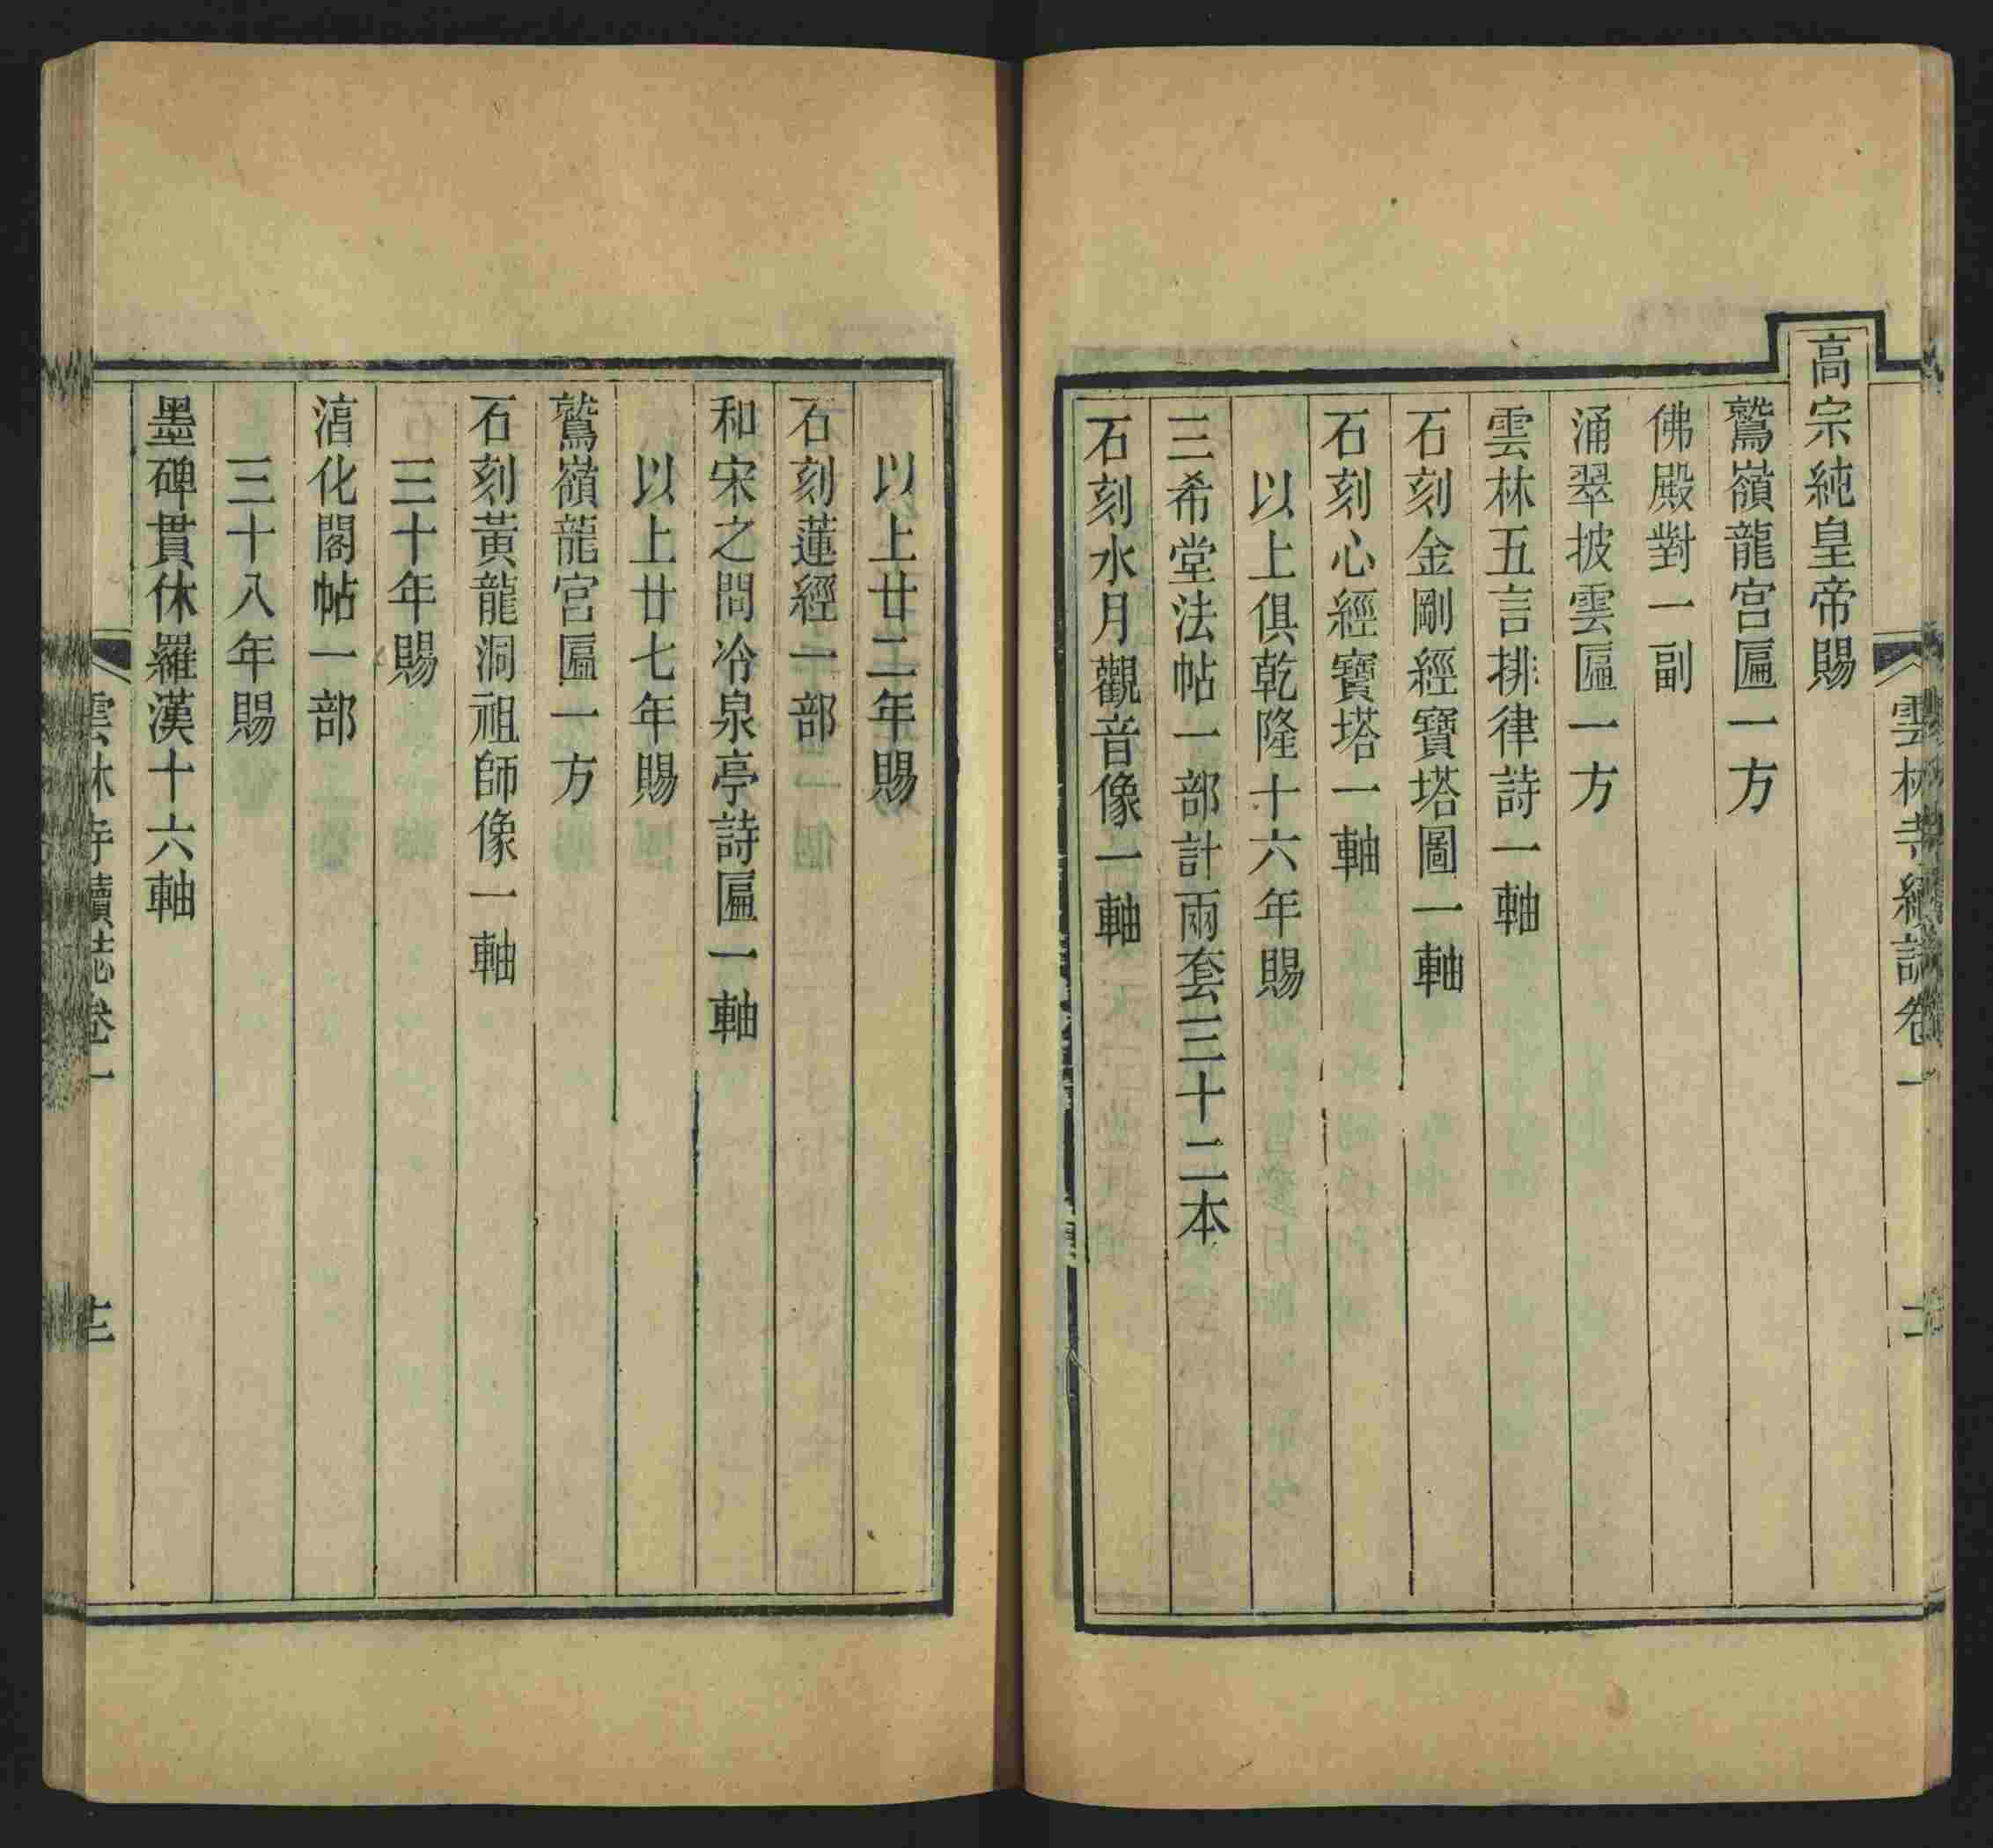 雲林寺續誌卷一
高宗純皇帝賜
鷲嶺龍宮匾一方
佛殿對一副
涌翠披雲匾一方
雲林五言排律詩一軸
石刻金剛經寶塔圖一軸
石刻心經寶塔一軸
以上俱乾隆十六年賜
三希堂法帖一部計兩套三十二本
石刻水月觀音像一軸
以上廿二年賜
石刻蓮經一部
和宋之問冷泉亭詩匾一軸
以上廿七年賜
鷲嶺龍宮匾一方
石刻黃龍洞祖師像一軸
三十年賜
湻化閣帖一部
三十八年賜
墨碑貫休羅漢十六軸
雲林寺續誌卷一